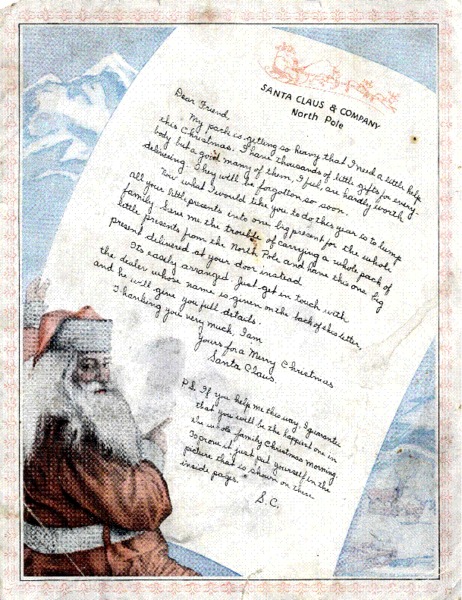 SANTA CLAUS & COMPANY
North Pole
Dear Friend,
My pack is getting so heavy that I need a little help
this Christmas. I have thousands of little gifts for every-
body but a good many of them, I feel, are hardly worth
delivering. They will be forgotten so soon.
Now what I would like you to do this year is to lump
all your little presents into one big present for the whole
family. Save me the trouble of carrying a whole pack of
little presents from the North Pole and have this one big
present delivered at your door instead.
Its easily arranged. Just get in touch with
the dealer whose name is given on the back of this letter,
and he will give you full details.
Thanking you very much, I am
Yours for a Merry Christmas
Santa Claus.
P.S. If you help me this way, I guarantee
that you will be the happiest one in
the whole family Christmas morning.
To prove it just put yourself in the
picture that is shown on the
inside pages.
S.C.